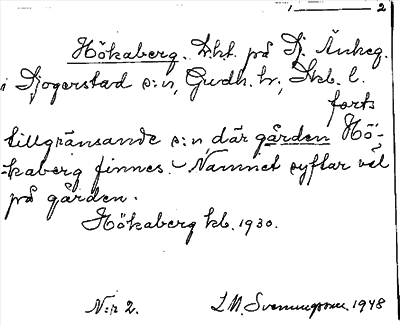 1 — 2
Hökaberg. Lht. på Dj. Änkeg.
i Djogerstad s:n, Gudh. hr, Skb. l.
forts
tillgränsande s:n, där gården Hö-
kaberg finnes. – Namnet syftar väl
på gården.
Hökaberg kb. 1930.
N:r 2. L M. Svenungsson. 1948